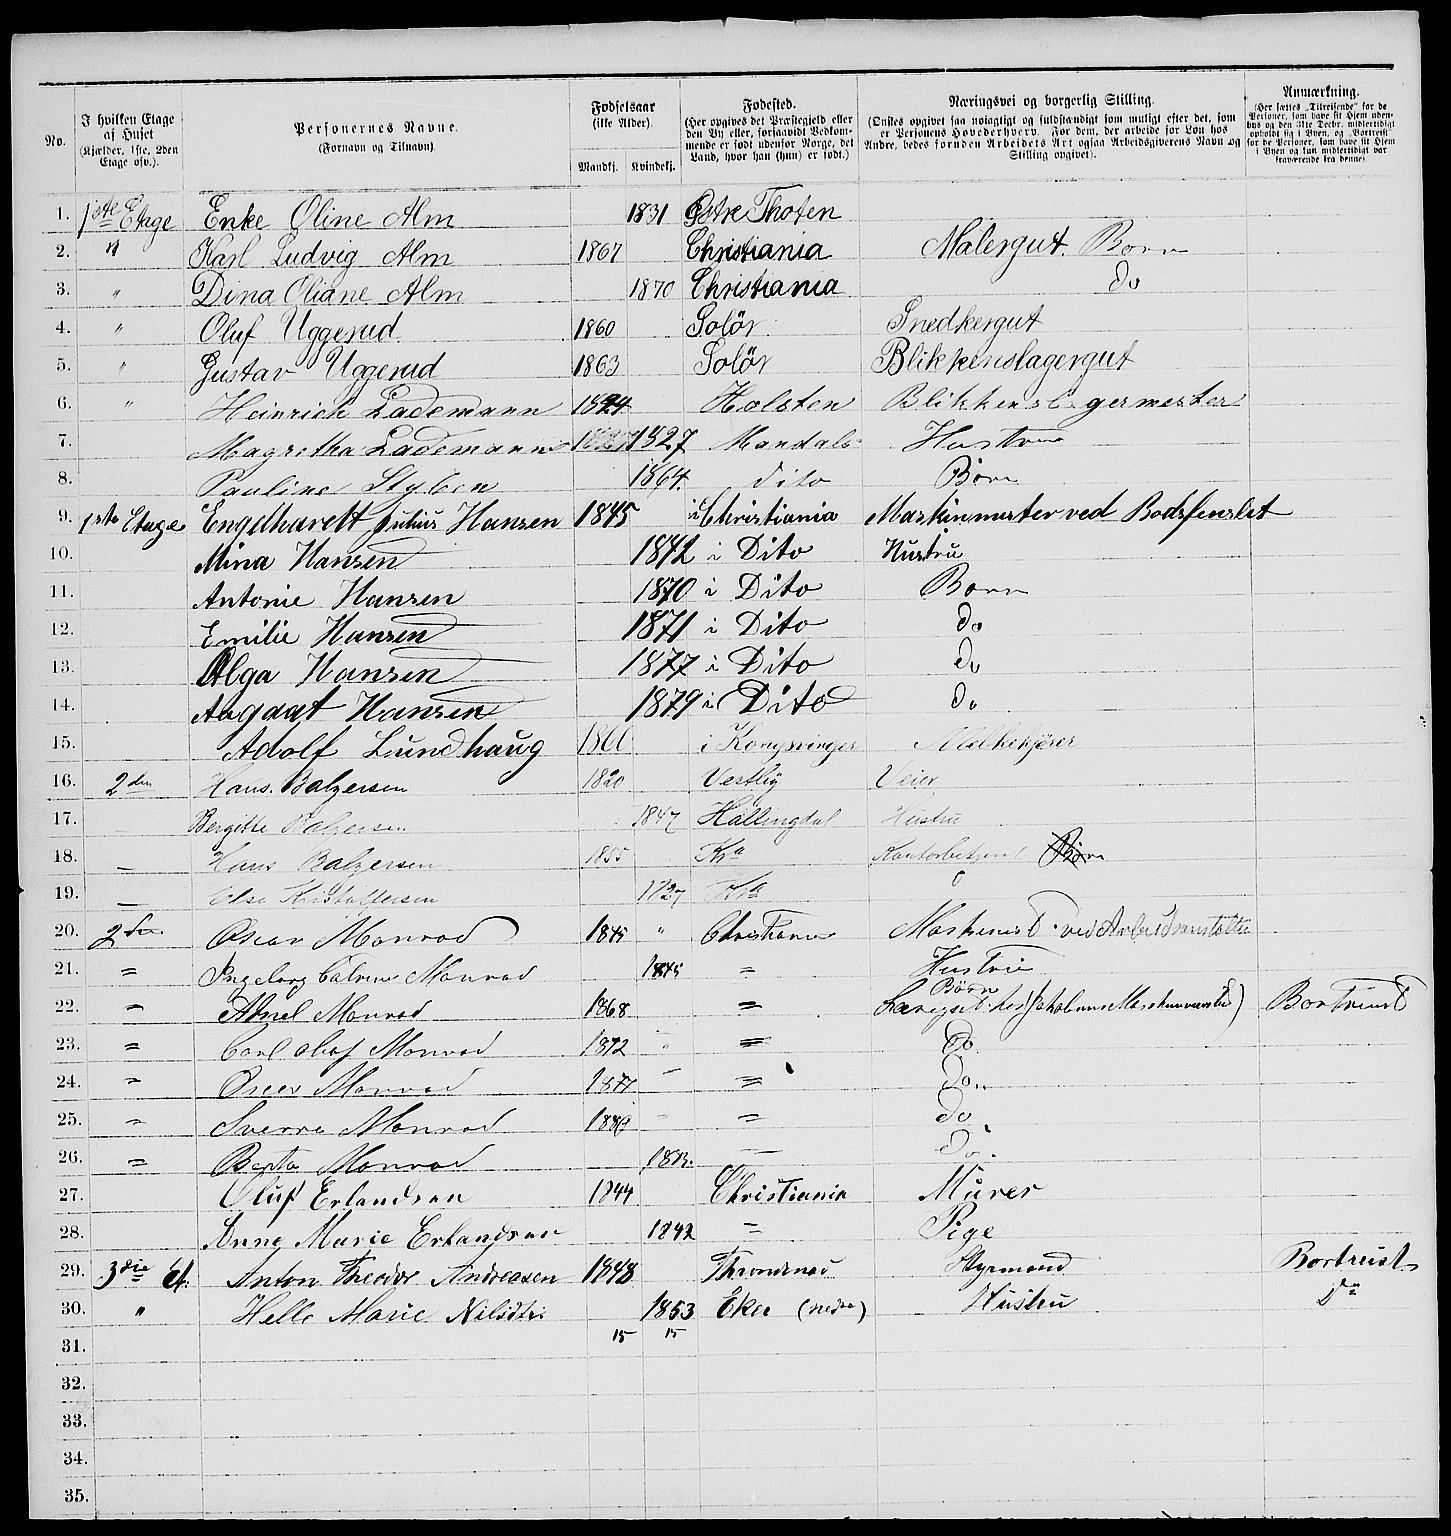 No. | I hvilken Etage af Huset (Kjælder, 1ste, 2den Etage osv.). | Personernes Navne. (Fornavn og Tilnavn). | Fødselsaar (ikke Alder). Mandkj. | Kvindekj. | Fødested. (Her opgives det Præstegjeld eller den By eller, forsaavidt Vedkommende er født udenfor Norge, det Land, hvor han (hun) er født.) | Næringsvei og borgerlig Stilling. (Ønskes opgivet saa nøiagtigt og fuldstændigt som muligt efter det, som er Personens Hovederhverv. For dem, der arbeide for Løn hos Andre, bedes foruden Arbeidets Art ogsaa Arbeidsgiverens Navn og Stilling opgivet). | Anmærkning. (Her sættes „Tilreisende" for de Personer, som have sit Hjem udenbys og den 31te Decbr. midlertidigt opholdt sig i Byen, og „Bortreist" for de Personer, som have sit Hjem i Byen og kun midlertidigt var fraværende fra denne).
1. 1ste Etage Enke Oline Alm 1831 Østre Thoten
2. " Karl Ludvig Alm 1867 Christiania Malergut. Børn
3. " Dina Oliane Alm 1870 Christiania do
4. " Oluf Uggerud 1860 Solör Snedkergut
5. " Gustav Uggerud 1863 Solör Blikkenslagergut
6. " Heinrich Lademann 1824 Holsten Blikkenslagermester
7. Magretha Lademann 1827 1827 Mandal Hustru
8. Pauline 1864. dito Børn
9. 1ste Etage Engelharett Julius Hansen 1845 i Christiania Maskinmester ved Bodsfenslet
10. Mina Hansen 1842 i Dito Hustru
11. Antonie Hansen 1870 i Dito Børn
12. Emilie Hansen 1871 i Dito do
13. Olga Hansen 1877 i Dito do
14. Aagaat Hansen 1879 i Dito do
15. Adolf Lundhaug 1860 i Kongsvinger Melkekjører
16. 2den Hans. Balzersen 1820 Vestby Veier
17. Bergitte Balzersen 1847 Hallingdal Hustru
18. — Hans Balzersen 1855 Kra Kontorbetjent Børn
19. — Else Kristoffersen 1827 Kra
20. 2den Oscar Monrad 1845 " Christiania Maskinist ved
21. = Ingeborg Monrad 1845 = Hustru
Børn
22. = Monrad 1868 = Bortreist
23. = Carl Olaf Monrad 1872 " = Do
24. = Oscar Monrad 1877 " = Do
25. = Sverre Monrad 1880 = do
26. = Monrad — Do.
27. Oluf Erlandsen 1844 Christiania Murer
28. Anne Marie Erlandsen 1842 = Pige
29. 3die Et. Anton Theodor Andreasen 1848 Throndenes Styrmand Bortreist
30. " Helle Marie Nilsdtr 1853 Eker (nedre) Hustru Do
15 15
31.
32.
33.
34.
35.